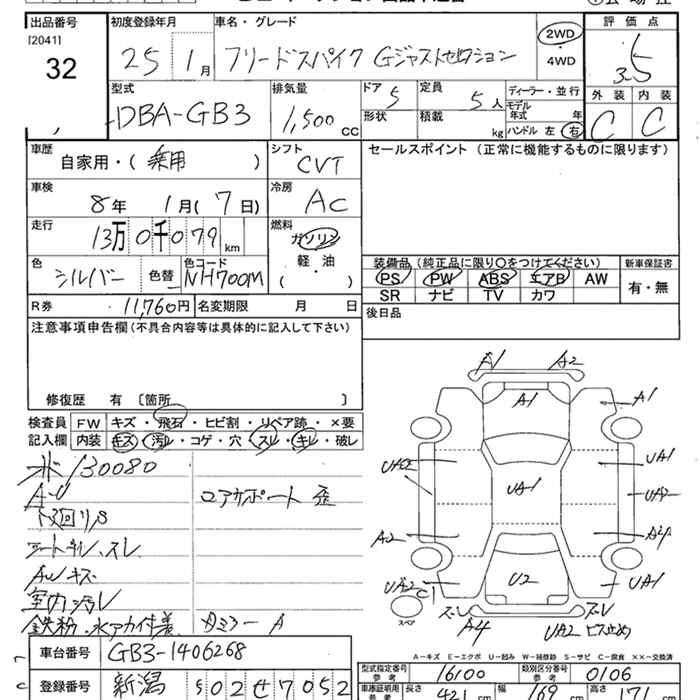 出品番号 初度登録年月 車名・グレード 評価点
[2041] 32
25年 1月 フリードスパイク Gジャストセレクション 2WD・4WD 3.5
型式 排気量 ドア 定員 ディーラー・並行 外装 内装
DBA-GB3 1,500cc 5 5人 モデル年式 年 C C
形状 積載 kg ハンドル 左 右
車歴 シフト セールスポイント (正常に機能するものに限ります)
自家用・(乗用) CVT
車検 冷房
8年 1月(7日) AC
走行 燃料
13万0千079km ガソリン 軽・油 ( )
装備品 (純正品に限り○をつけてください) 新車保証書
色 シルバー 色替 色コード NH700M
PS PW ABS エアB AW 有・無
SR ナビ TV カワ
R券 11,760円 名変期限 月 日
後日品
注意事項申告欄 (不具合内容等は具体的に記入して下さい)
修復歴 有 〔箇所 〕
検査員 FW キズ・飛石・ヒビ割・リペア跡・×要
記入欄 内装 キズ・汚レ・コゲ・穴・スレ・キレ・破レ
130080
A-U ロアサポート歪
下廻りS
シートキレ.スレ
AWキズ
室内汚レ
鉄粉.水アカ付着 Dミラー A
A1 A2
A1 A1
UA2 UA1 UA1
UA2
A2 A2
UA2 U2 UA1
C1
スペア スレ A4 スレ UA2 ビス止め
A-キズ E-エクボ U-凹み W-補修跡 S-サビ C-腐食 ××-交換済
車台番号 GB3-1406268
型式指定番号 参考 16100 類別区分番号 参考 0106
登録番号 新潟 502 せ 7052
車庫証明用 参考 長さ 421cm 幅 169cm 高さ 171cm